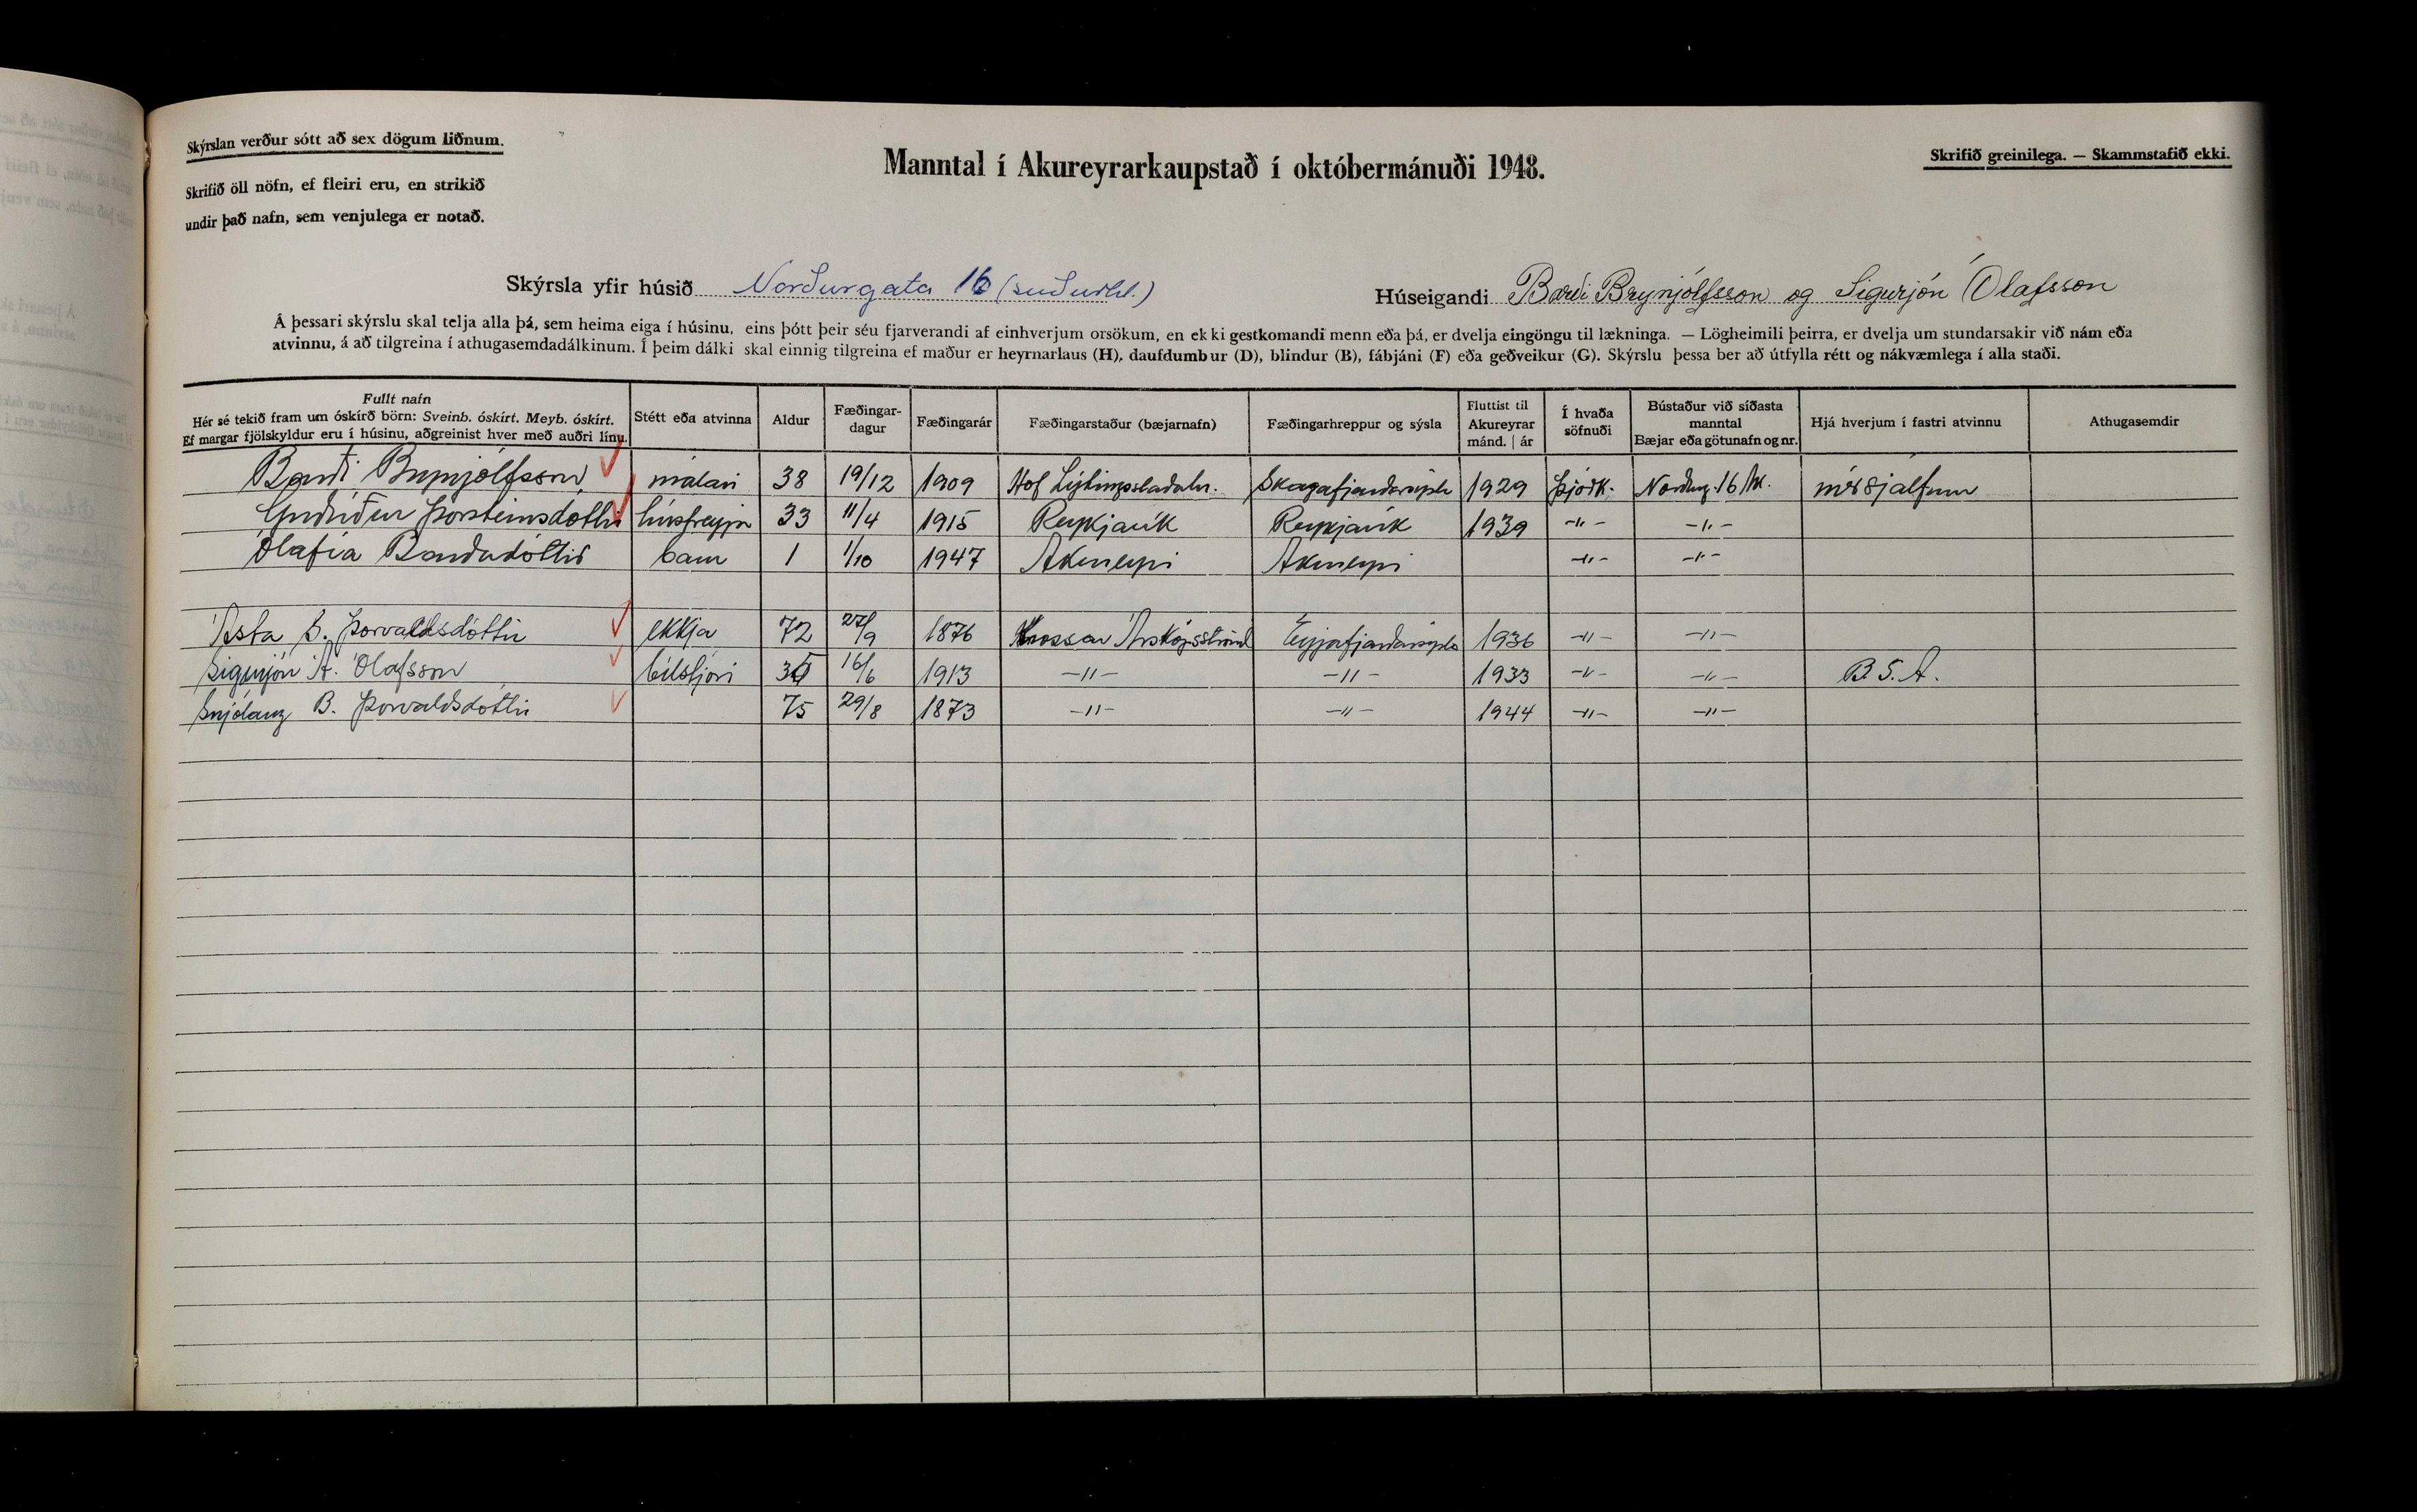 Skýrslan verður sótt að sex dögum liðnum.
Skrifið öll nöfn, ef fleiri eru, en strikið
undir það nafn, sem venjulega er notað.
Manntal í Akureyrarkaupstað í októbermánuði 1948.
Skrifið greinilega. — Skammstafið ekki.
Skýrsla yfir húsið Norðurgata 16 (suðurhl.)
Húseigandi Barði Brynjólfsson og Sigurjón Ólafsson
Á þessari skýrslu skal telja alla þá, sem heima eiga í húsinu, eins þótt þeir séu fjarverandi af einhverjum orsökum, en ekki gestkomandi menn eða þá, er dvelja eingöngu til lækninga. — Lögheimili þeirra, er dvelja um stundarsakir við nám eða
atvinnu, á að tilgreina í athugasemdadálkinum. Í þeim dálki skal einnig tilgreina ef maður er heyrnarlaus (H), daufdumbur (D), blindur (B), fábjáni (F) eða geðveikur (G). Skýrslu þessa ber að útfylla rétt og nákvæmlega í alla staði.
Fullt nafn
Hér sé tekið fram um óskírð börn: Sveinb. óskírt. Meyb. óskírt.
Ef margar fjölskyldur eru í húsinu, aðgreinist hver með auðri línu.
Stétt eða atvinna
Aldur
Fæðingar-
dagur
Fæðingarár
Fæðingarstaður (bæjarnafn)
Fæðingarhreppur og sýsla
Fluttist til
Akureyrar
mánd. | ár
Í hvaða
söfnuði
Bústaður við síðasta
manntal
Bæjar eða götunafn og nr.
Hjá hverjum í fastri atvinnu
Athugasemdir
Barði Brynjólfsson málari 38 19/12 1909 Hof Lýtingsstaðahr. Skagafjarðarsýslu 1929 Þjóðk. Norðurg. 16 Ak. mér sjálfum
Guðríður Þorsteinsdóttir húsfreyja 33 11/4 1915 Reykjavík Reykjavík 1939 -"- -"-
Ólafía Barðadóttir barn 1 1/10 1947 Akureyri Akureyri -"- -"-
Ásta S. Þorvaldsdóttir ekkja 72 27/9 1876 Krossar Árskógsströnd Eyjafjarðarsýsla 1936 -"- -"-
Sigurjón A. Ólafsson bílstjóri 35 16/6 1913 -"- -"- 1933 -"- -"- B.S.A.
Snjólaug B. Þorvaldsdóttir 75 29/8 1873 -"- -"- 1944 -"- -"-